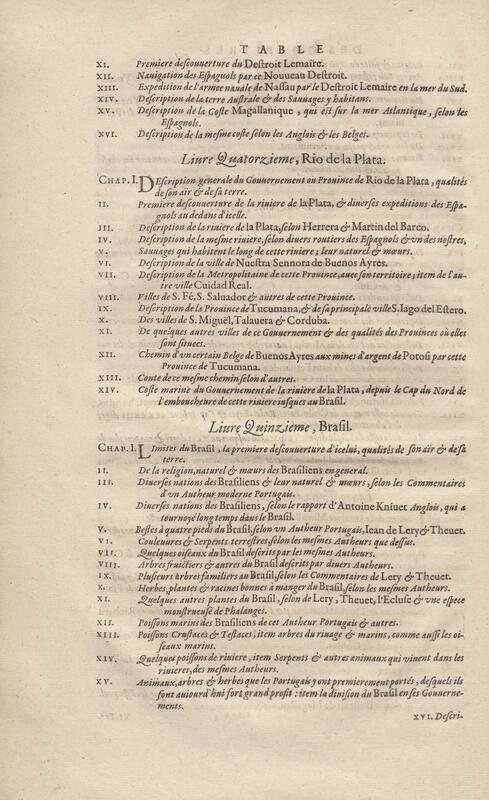 TABLE
XI. Premiere descouverture du Destroit Lemaire.
XII. Navigation des Espagnols par ce Nouveau Destroit.
XIII. Expedition de l'armee navale de Nassau par le Destroit Lemaire en la mer du Sud.
XIV. Description de la terre Australe & des Sauvages y habitans.
XV. Description de la Coste Magallanique, qui est sur la mer Atlantique, selon les
Espagnols.
XVI. Description de la mesme coste selon les Anglois & les Belges.
Livre Quatorzieme, Rio de la Plata.
CHAP. I. DEscription generale du Gouvernement ou Province de Rio de la Plata, qualités
de son air & de sa terre.
II. Premiere descouverture de la riviere de la Plata, & diverses expeditions des Espa-
gnols au dedans d'icelle.
III. Description de la riviere de la Plata, selon Herrera & Martin del Barco.
IV. Description de la mesme riviere, selon divers routiers des Espagnols & vn des nostres,
V. Sauvages qui habitent le long de cette riviere; leur naturel & mœurs.
VI. Description de la ville de Nuestra Sennora de Buenos Ayres.
VII. Description de la Metropolitaine de cette Province, avec son territoire; item de l'au-
tre ville Cuidad Real.
VIII. Villes de S. Fé, S. Salvador & autres de cette Province.
IX. Description de la Province de Tucumana, & de sa principale ville S. Iago del Estero.
X. Des villes de S. Miguël, Talavera & Corduba.
XI. De quelques autres villes de ce Gouvernement & des qualités des Provinces où elles
sont situees.
XII. Chemin d'vn certain Belge de Buenos Ayres aux mines d'argent de Potosi par cette
Province de Tucumana.
XIII. Conte de ce mesme chemin selon d'autres.
XIV. Coste marine du Gouvernement de la riviere de la Plata, depuis le Cap du Nord de
l'emboucheure de cette riviere iusques au Brasil.
Livre Quinzieme, Brasil.
CHAP. I. LImites du Brasil, la premiere descouverture d'icelui, qualités de son air & de sa
terre.
II. De la religion, naturel & mœurs des Brasiliens en general.
III. Diverses nations des Brasiliens & leur naturel & mœurs, selon les Commentaires
d'vn Autheur moderne Portugais.
IV. Diverses nations des Brasiliens, selon le rapport d'Antoine Knivet Anglois, qui a
tournoyé long temps dans le Brasil.
V. Bestes à quatre pieds du Brasil, selon vn Autheur Portugais, Iean de Lery & Thevet.
VI. Couleuvres & Serpents terrestres, selon les mesmes Autheurs que dessus.
VII. Quelques oiseaux du Brasil descrits par les mesmes Autheurs.
VIII. Arbres fruictiers & autres du Brasil descrits par divers Autheurs.
IX. Plusieurs Arbres familiers au Brasil, selon les Commentaires de Lery & Thevet.
X. Herbes, plantes & racines bonnes à manger du Brasil, selon les mesmes Autheurs.
XI. Quelques autres plantes du Brasil, selon de Lery, Thevet, l'Ecluse & vne espece
monstrueuse de Phalanges.
XII. Poissons marins des Brasiliens de cet Autheur Portugais & autres.
XIII. Poissons Crustacés & Testaces, item arbres du rivage & marins, comme aussi les oi-
seaux marins.
XIV. Quelques poissons de riviere, item Serpents & autres animaux qui vivent dans les
rivieres, des mesmes Autheurs.
XV. Animaux, arbres & herbes que les Portugais y ont premierement portés, desquels ils
font aujourd'hui fort grand profit : item la division du Brasil en ses Gouverne-
ments.
XVI. Descri-